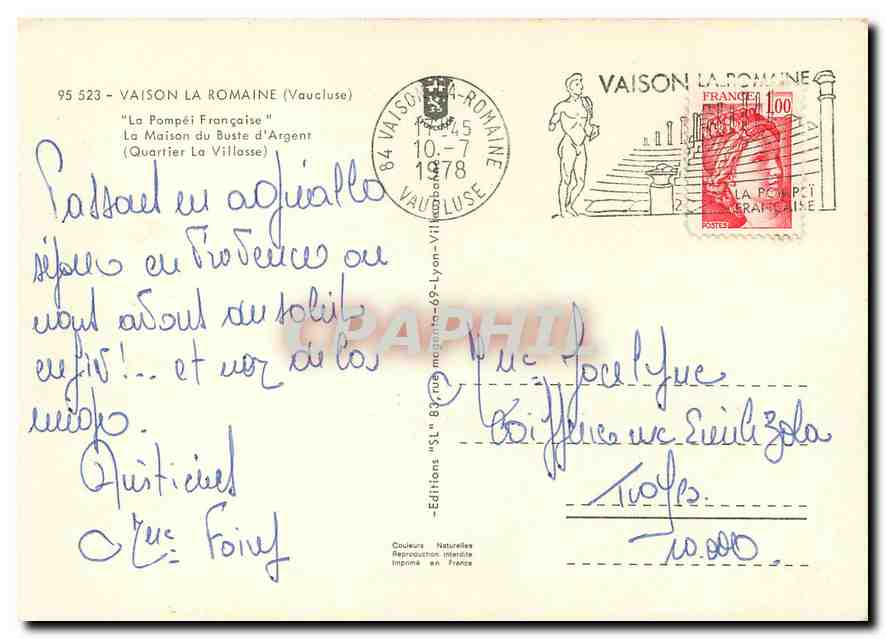 95 523 - VAISON LA ROMAINE (Vaucluse)
"La Pompéi Française"
La Maison du Buste d'Argent
(Quartier La Villasse)
84 VAISON-LA-ROMAINE
17-45
10.-7
1978
VAUCLUSE
VAISON LA ROMAINE
LA POMPEÏ
FRANCAISE
FRANCE 1,00
POSTES
Passons un agréable
séjour en Provence où
nous avons du soleil
enfin!... et non de la
neige.
Amitiés
Mme
-Editions "SL" 83, rue magenta-69-Lyon-Villeurbanne
CPAPHIL
Mme Jocelyne
Coiffeuse rue Emile Zola
Troyes.
10.000.
Couleurs Naturelles
Reproduction interdite
Imprimé en France